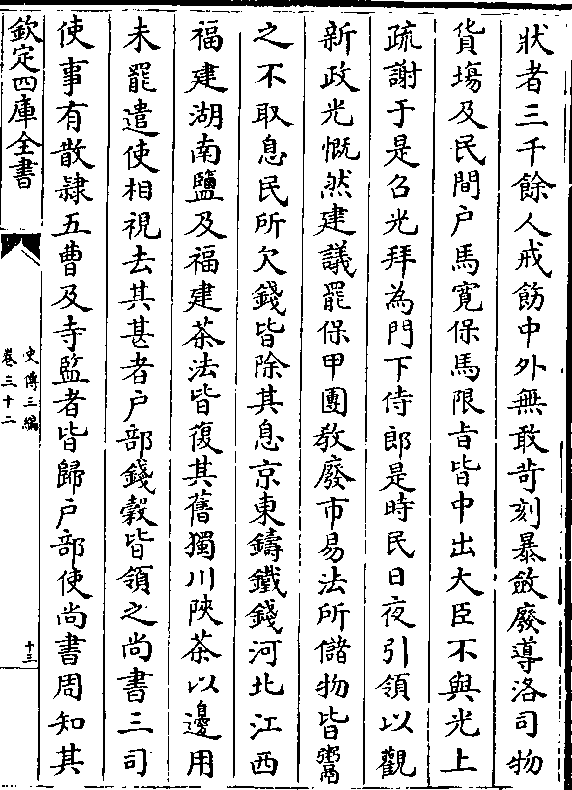 狀者三千餘人戒飭中外無敢苛刻暴斂廢導洛司物
貨塲及民間户馬寛保馬限㫖皆中出大臣不與光上
疏謝于是召光拜為門下侍郎是時民日夜引領以觀
新政光慨然建議罷保甲團教廢市易法所儲物皆鬻
之不取息民所欠錢皆除其息京東鑄鐵錢河北江西
福建湖南鹽及福建茶法皆復其舊獨川陜茶以邊用
未罷遣使相視去其甚者户部錢榖皆領之尚書三司
使事有散隸五曹及寺監者皆歸户部使尚書周知其
欽定四庫全書
史傳三編
卷三十二
十三